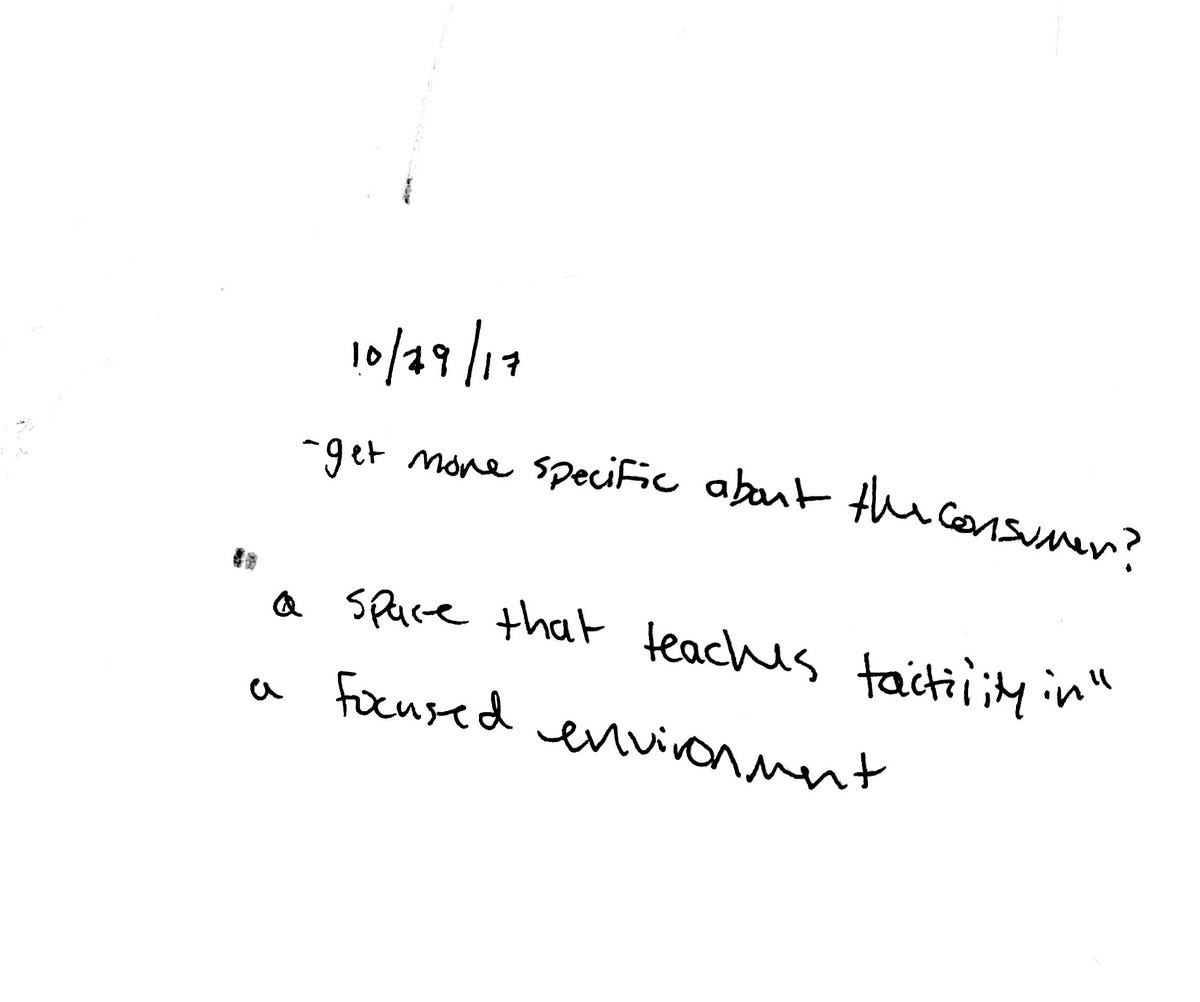 10/29/17
-get more specific about the consumer?
"a space that teaches tactility in"
a focused environment